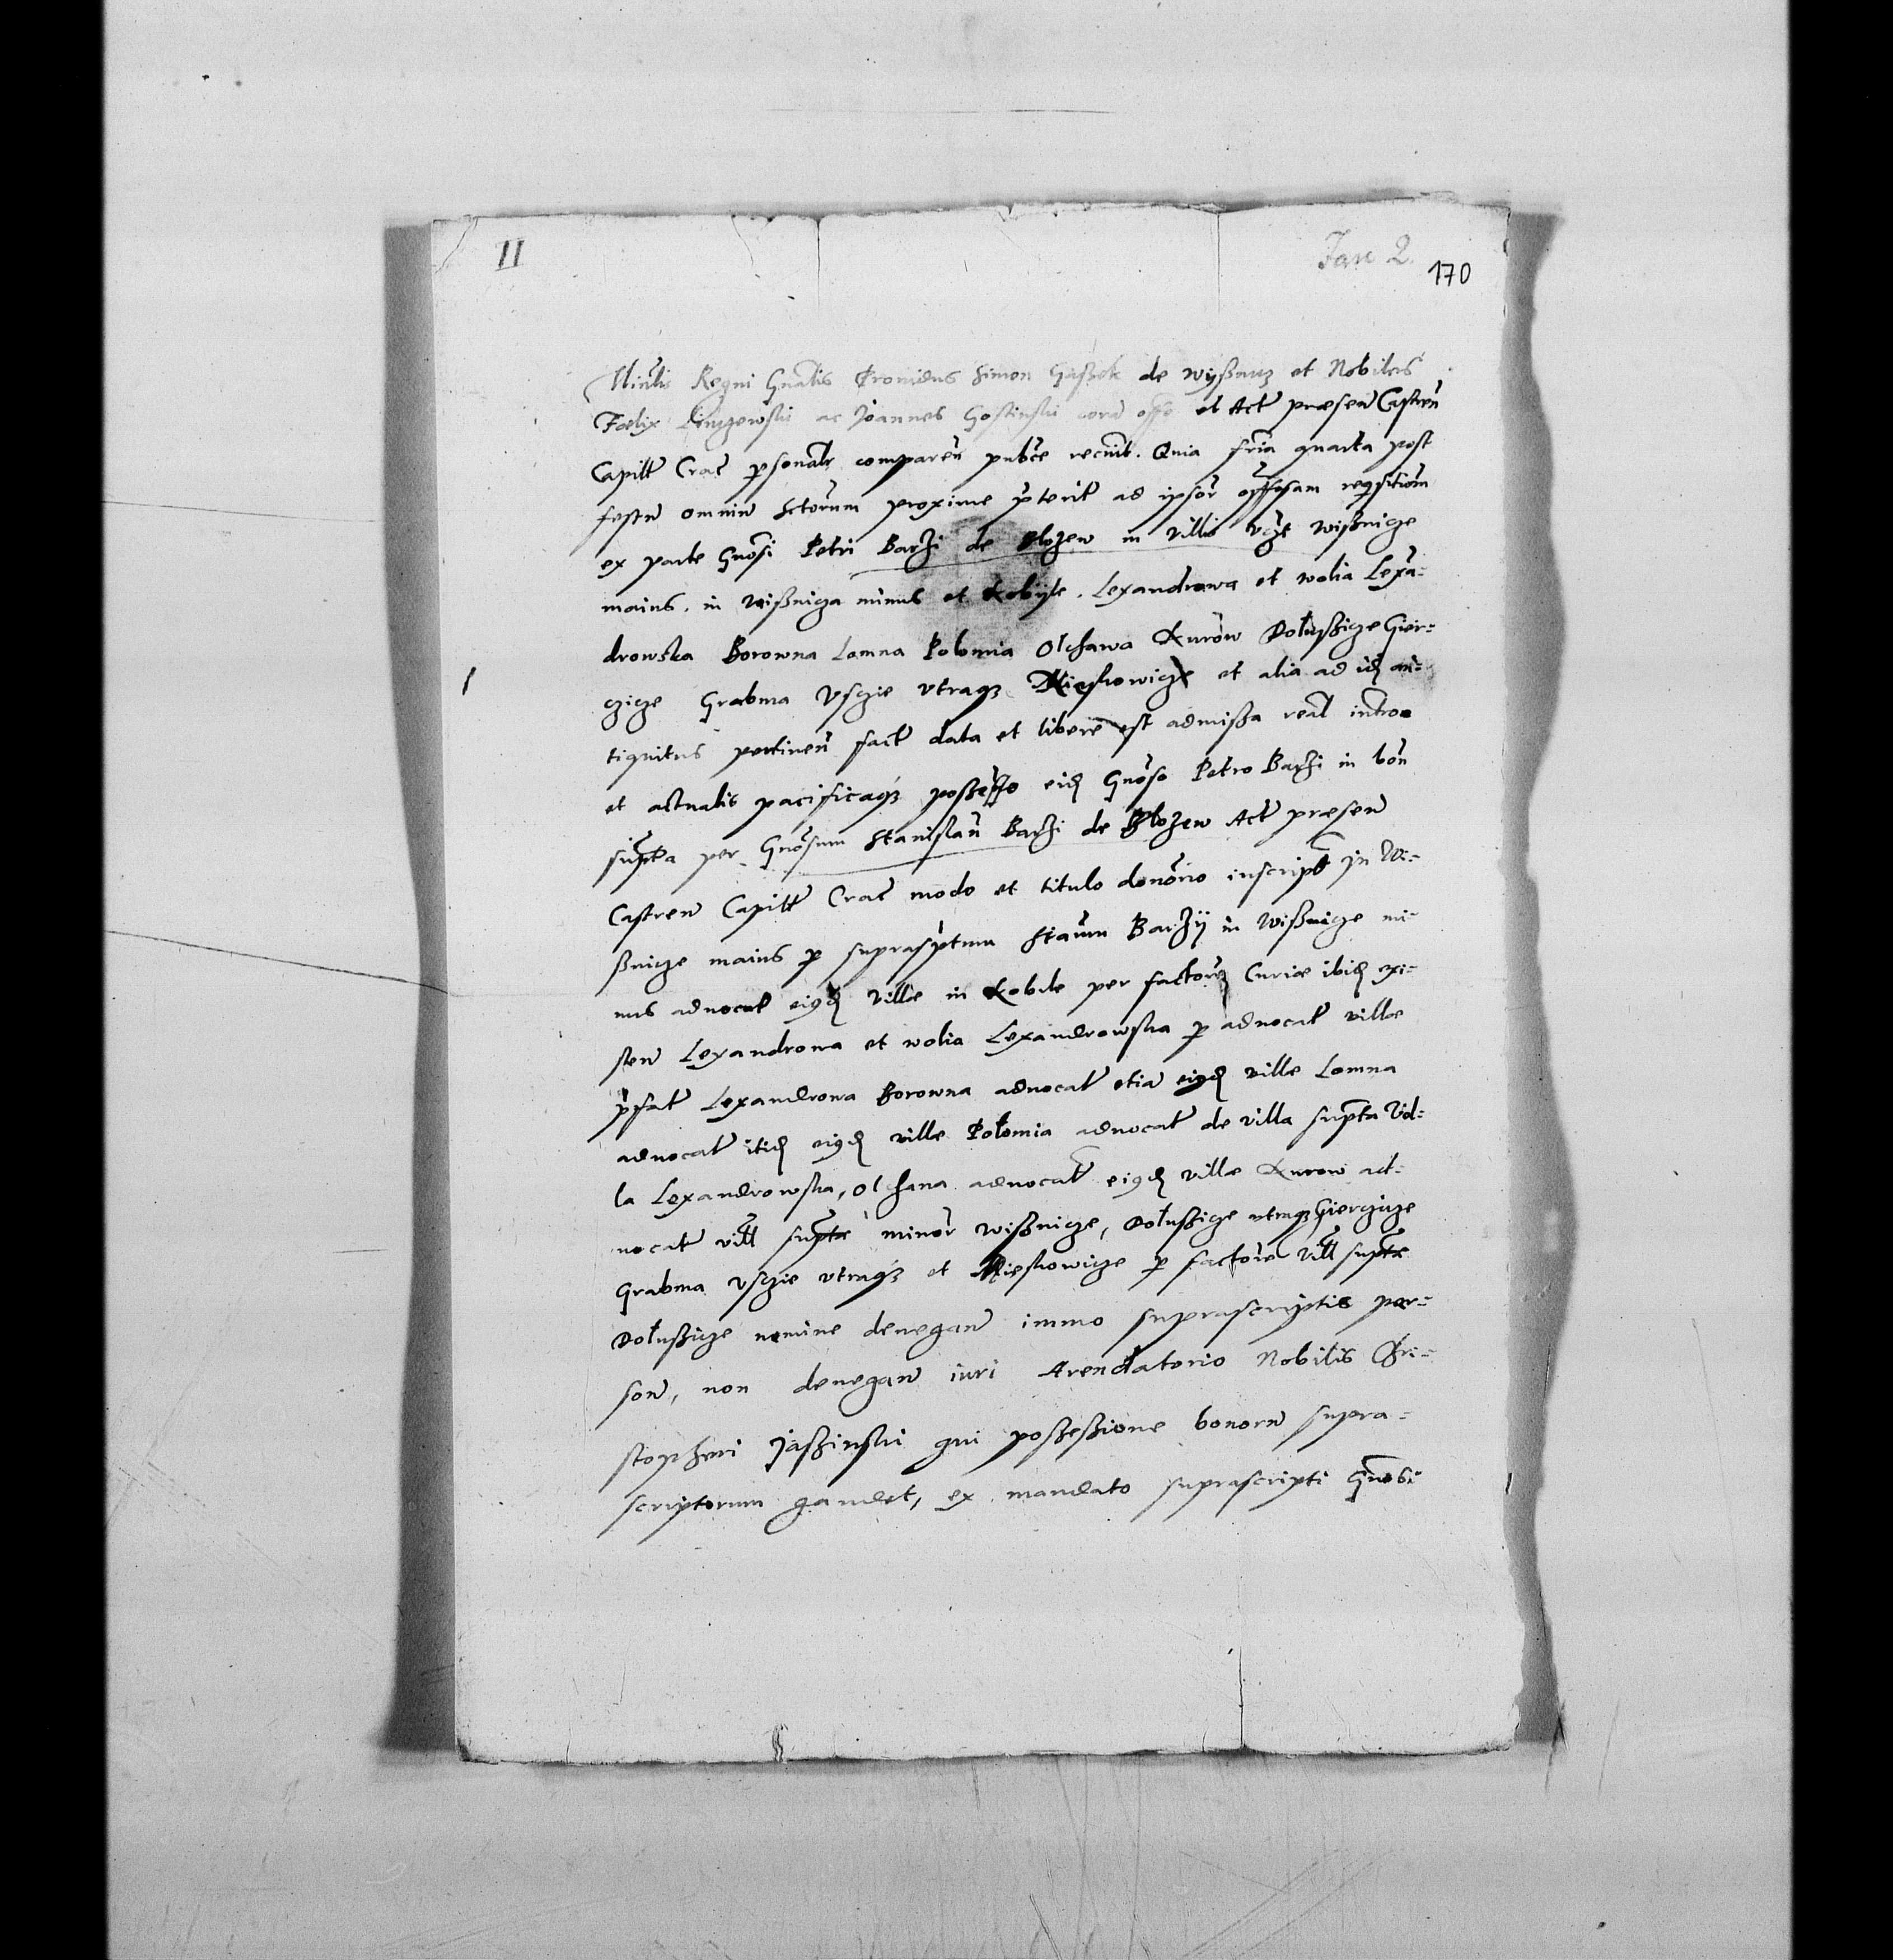 II
Jan 2.
170
Minlis Regni Gnalis Prouidus Simon Gaszek de Wyßnicz et Nobiles
Foelix ac Joannes Gostinski coram offo et Act præsen Castren
Capitt Crac psonalr comparen pubce recnit. Quia fria quarta post
festu omniu Sctorum proxime pterit ad ipsor offosam reqsitiom
ex parte Gnosi Petri Barzi de Blozew in villis vczt Wißnicze
maius. in Wißnicza minus et Kobyle. Lexandrowa et wolia Lexa=
drowska Borowna Lomna Polomia Olchawa Kurow Dołußicze Gier=
czicze Grabina Vsczie vtraqz Mieskowicze et alia ad id an=
tiquitus pertinen fact data et libere est admißa real introo
et actualis pacificaqz poßeßio eid Gnoso Petro Barzi in bon
supta per Gnosum Stanislau Barzi de Blozew Act præsen
Castren Capitt Crac modo et titulo donorio inscript in Wi=
ßnicze maius p suprasptum Staum Barzij in Wißnicze mi=
nus aduocat eiqd villæ in Kobile per factore Curiæ ibid exi=
sten Lexandrowa et wolia Lexandrowska p aduocat villæ
pfat Lexandrowa Borowna aduocat etia eiqd villæ Lomna
aduocat itid eiqd villæ Połomia aduocat de villa supta Vol=
la Lexandrowska, Olchaua aduocat eiqd villæ Kurow ad=
uocat vill supta minor Wißnicze, Dołußicze vtraqz Gierczicze
Grabina Vsczie vtraqz et Mieskowicze p factore vill supta
Dołußicze nemine denegan immo suprascriptis per=
son, non denegan iuri Arendatorio Nobilis Chri=
stopheri Jaßinski qui poßeßione bonoru supra=
scriptorum gaudet, ex mandato suprascripti Gnosi